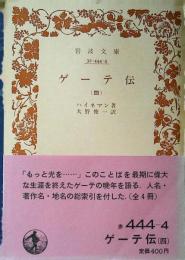 岩波文庫
37-444-4
ゲーテ伝
(四)
ハイネマン著
大野俊一訳
「もっと光を……」このことばを最期に偉大
な生涯を終えたゲーテの晩年を語る。人名・
著作名・地名の総索引を付した。(全4冊)
赤 444-4
ゲーテ伝(四)
定価400円